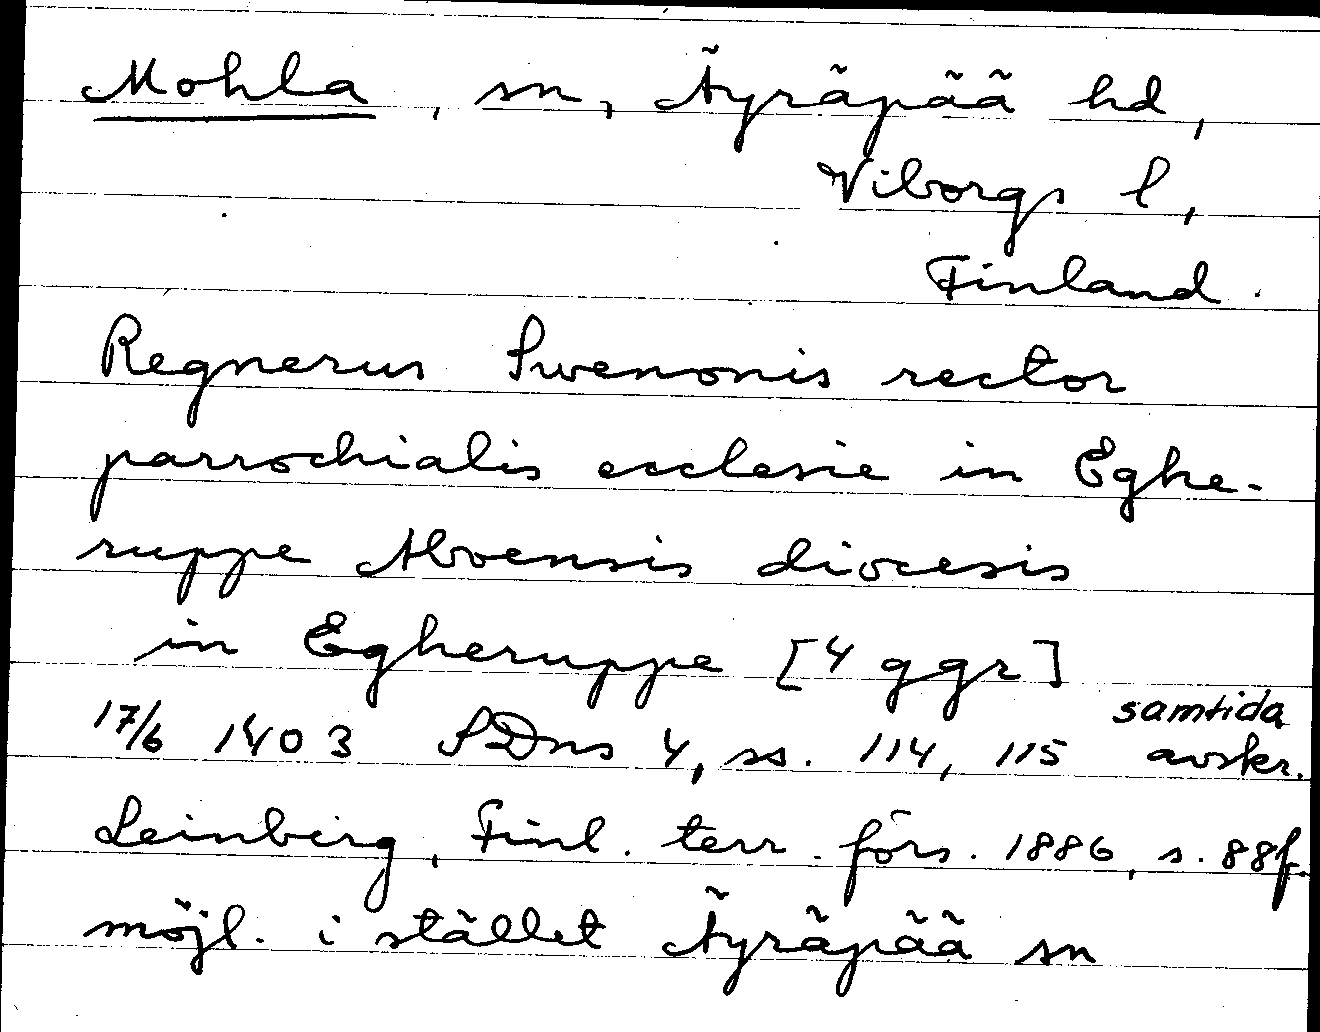 Mohla, sn, Äyräpää hd,
Viborgs l,
Finland.
Regnerus Swenonis rector
parrochialis ecclesie in Eghe-
ruppe Aboensis diocesis
in Egheruppe [4 ggr]
17/6 1403 SDns 4, ss. 114, 115 samtida avskr.
Leinberg, Finl. terr. förs. 1886, s. 88f.
möjl. i stället Äyräpää sn